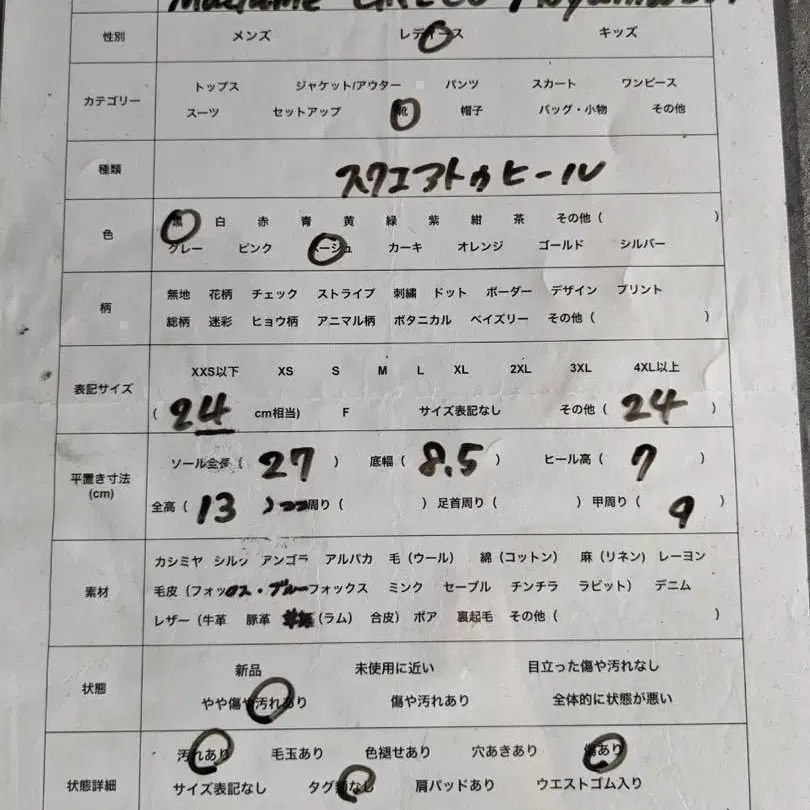 Madame
性別 メンズ レディース キッズ
カテゴリー
トップス ジャケット/アウター パンツ スカート ワンピース
スーツ セットアップ 靴 帽子 バッグ・小物 その他
種類 スクエアトゥヒール
色
黒 白 赤 青 黄 緑 紫 紺 茶 その他 ( )
グレー ピンク ベージュ カーキ オレンジ ゴールド シルバー
柄
無地 花柄 チェック ストライプ 刺繍 ドット ボーダー デザイン プリント
総柄 迷彩 ヒョウ柄 アニマル柄 ボタニカル ペイズリー その他 ( )
表記サイズ
XXS以下 XS S M L XL 2XL 3XL 4XL以上
( 24 cm相当) F サイズ表記なし その他 ( 24 )
平置き寸法
(cm)
ソール全長 ( 27 ) 底幅 ( 8.5 ) ヒール高 ( 7 )
全高 ( 13 ) 周り ( ) 足首周り ( ) 甲周り ( 9 )
素材
カシミヤ シルク アンゴラ アルパカ 毛 (ウール) 綿 (コットン) 麻 (リネン) レーヨン
毛皮 (フォックス・ブルーフォックス ミンク セーブル チンチラ ラビット) デニム
レザー (牛革 豚革 (ラム) 合皮) ボア 裏起毛 その他 ( )
状態
新品 未使用に近い 目立った傷や汚れなし
やや傷や汚れあり 傷や汚れあり 全体的に状態が悪い
状態詳細
汚れあり 毛玉あり 色褪せあり 穴あきあり 傷あり
サイズ表記なし タグ類なし 肩パッドあり ウエストゴム入り